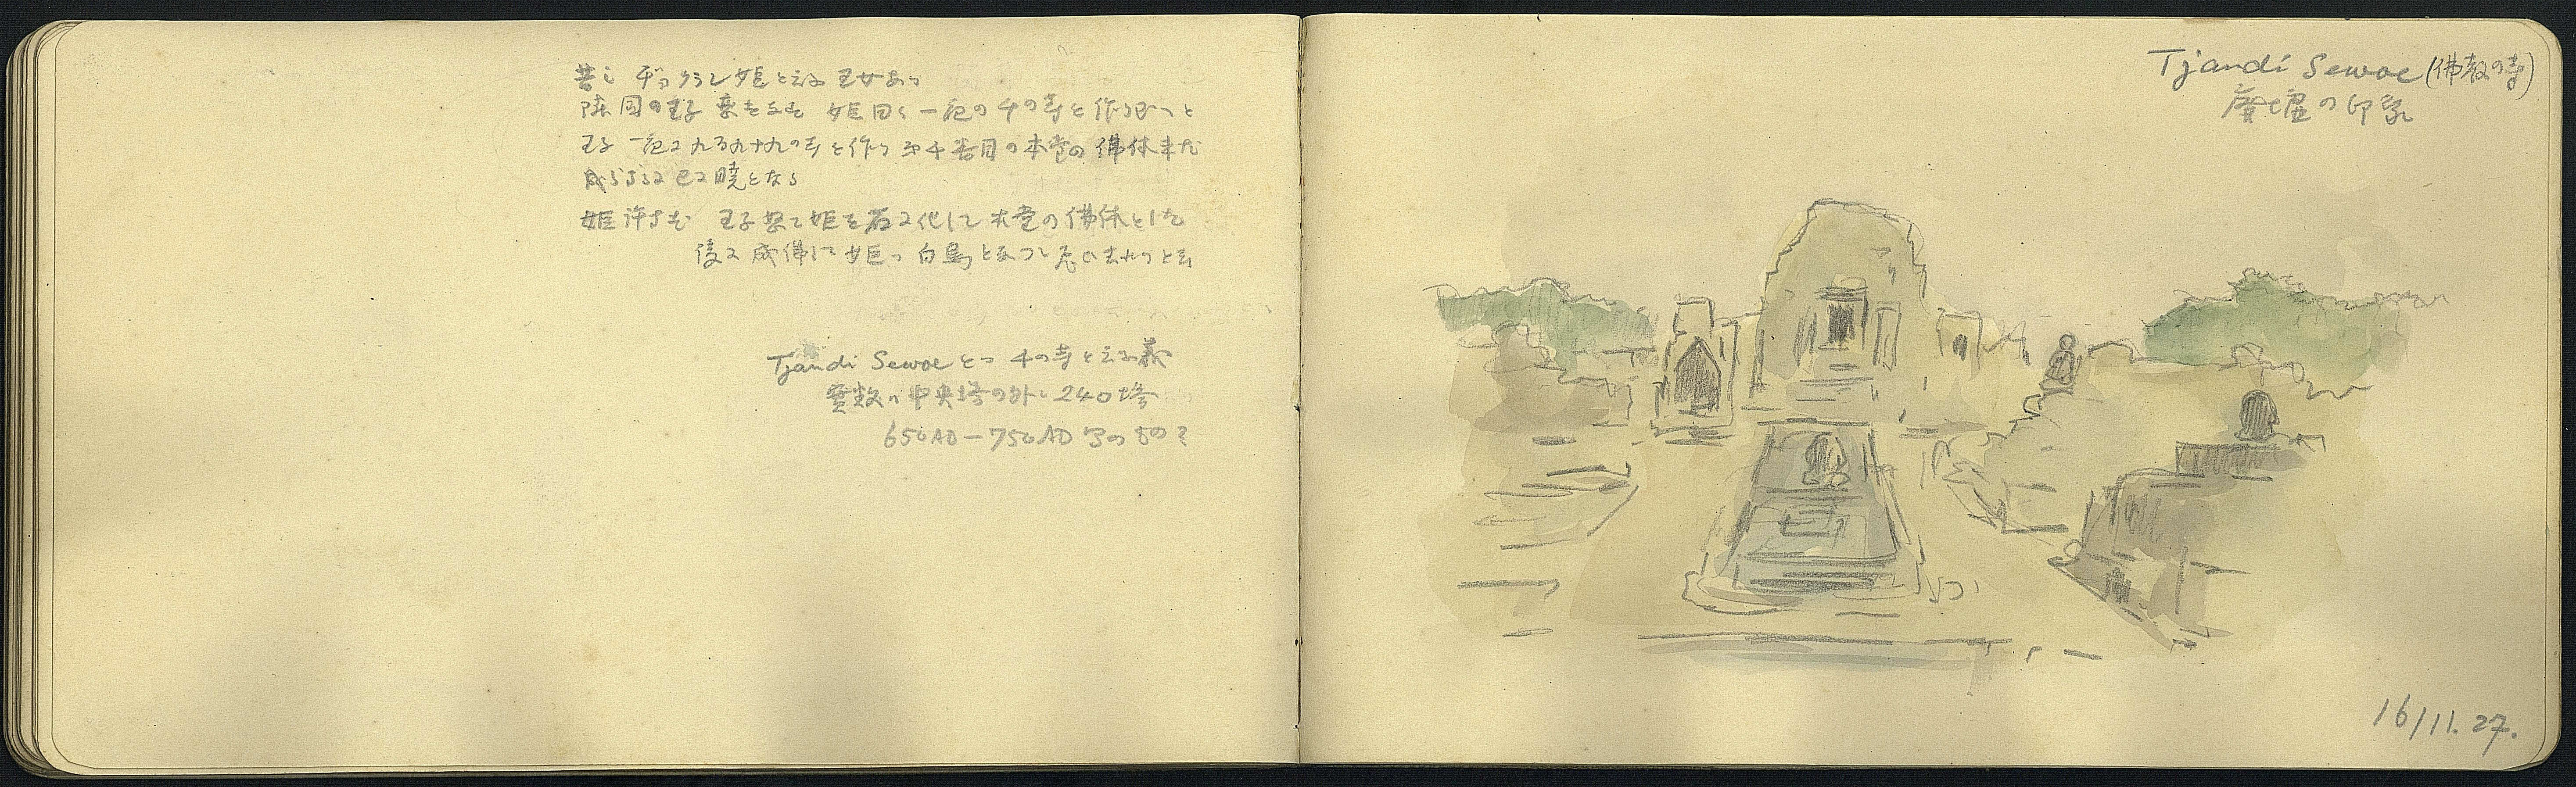 昔し ヂョクラン姫と云ふ王女あり
隣国の王子 姫曰く一夜の千の寺を作るべしと
王子一夜に九百九十九の寺を作り 千番目の本堂の佛体未だ
成らざるに已に暁となる
姫許さず 王子怒て姫を石に化して本堂の佛体とした
後に成佛して姫ハ白鳥となつて飛び去れりと云
Tjandi Sewoe とハ千の寺と云ふ義
実数ハ中央塔の外ニ240塔
650AD—750AD のもの?
Tjandi Sewoe (佛教の寺)
廃墟の印象
16/11.27.